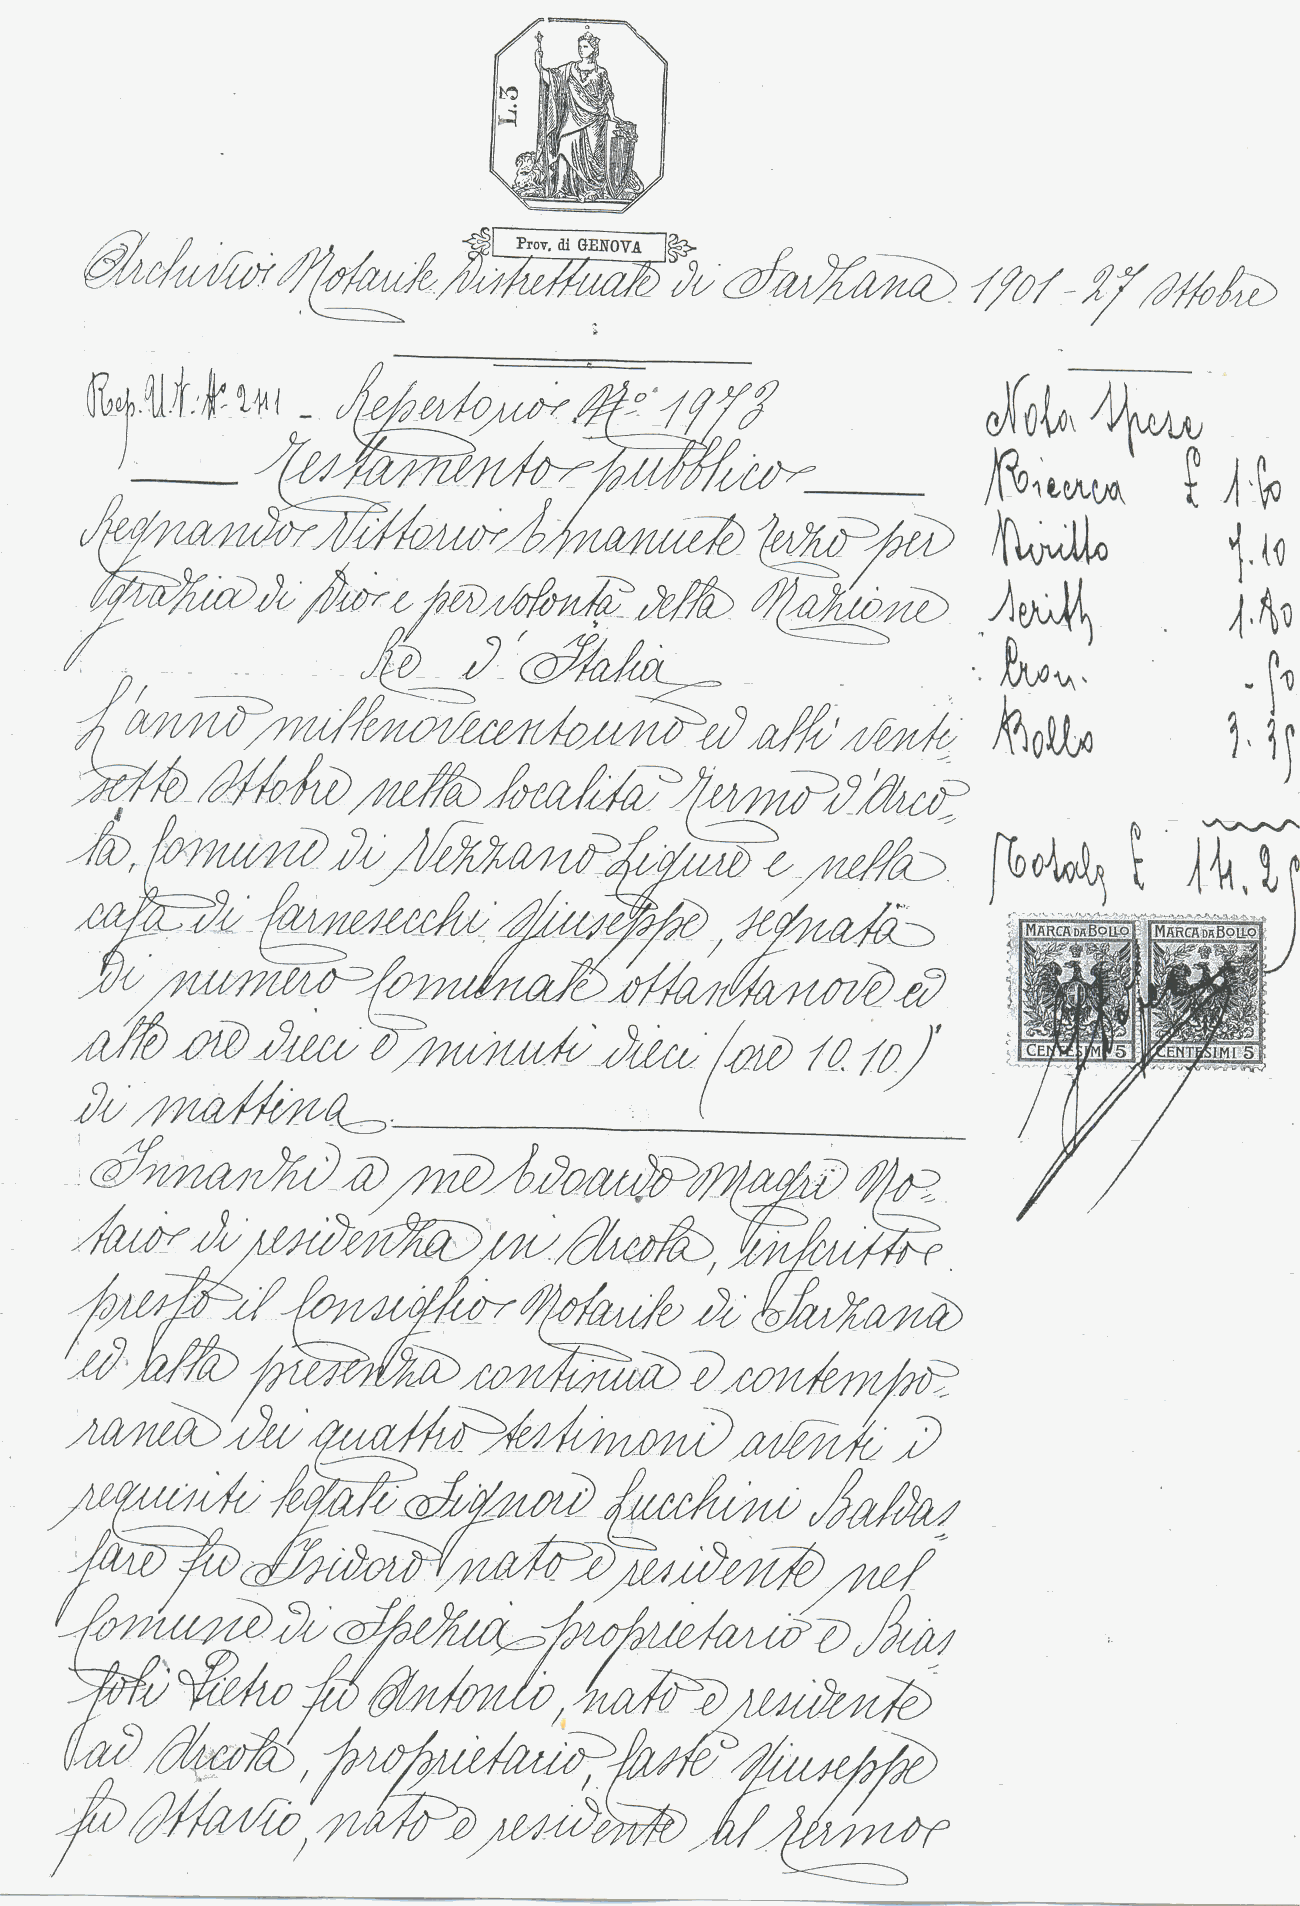 L.3
Prov. di GENOVA
Archivio Notarile Distrettuale di Sarzana 1901 - 27 Ottobre
Rep. U.V. No 2411 - Repertorio No 1973
Testamento pubblico
Regnando Vittorio Emanuele Terzo per
grazia di Dio e per volontà della Nazione
Re d'Italia
L'anno millenovecentouno ed alli venti=
sette Ottobre nella località Termo d'Arco=
la, Comune di Vezzano Ligure e nella
casa di Carnesecchi Giuseppe, segnata
di numero Comunale ottantanove ed
alle ore dieci e minuti dieci (ore 10.10)
di mattina
Innanzi a me Edoardo Magri No=
taio di residenza in Arcola, inscritto
presso il Consiglio Notarile di Sarzana
ed alla presenza continua e contempo=
ranea dei quattro testimoni aventi i
requisiti legali Signori Lucchini Baldas=
sare fu Isidoro nato e residente nel
Comune di Spezia proprietario e Bias=
soli Pietro fu Antonio, nato e residente
ad Arcola, proprietario, Castè Giuseppe
fu Ottavio, nato e residente al Termo
Nota Spese
Ricerca £ 1.60
Diritto 7.10
Scritt 1.80
Cron. -.50
Bollo 3.25
Totale £ 14.25
MARCA DA BOLLO MARCA DA BOLLO
CENTESIMI 5 CENTESIMI 5